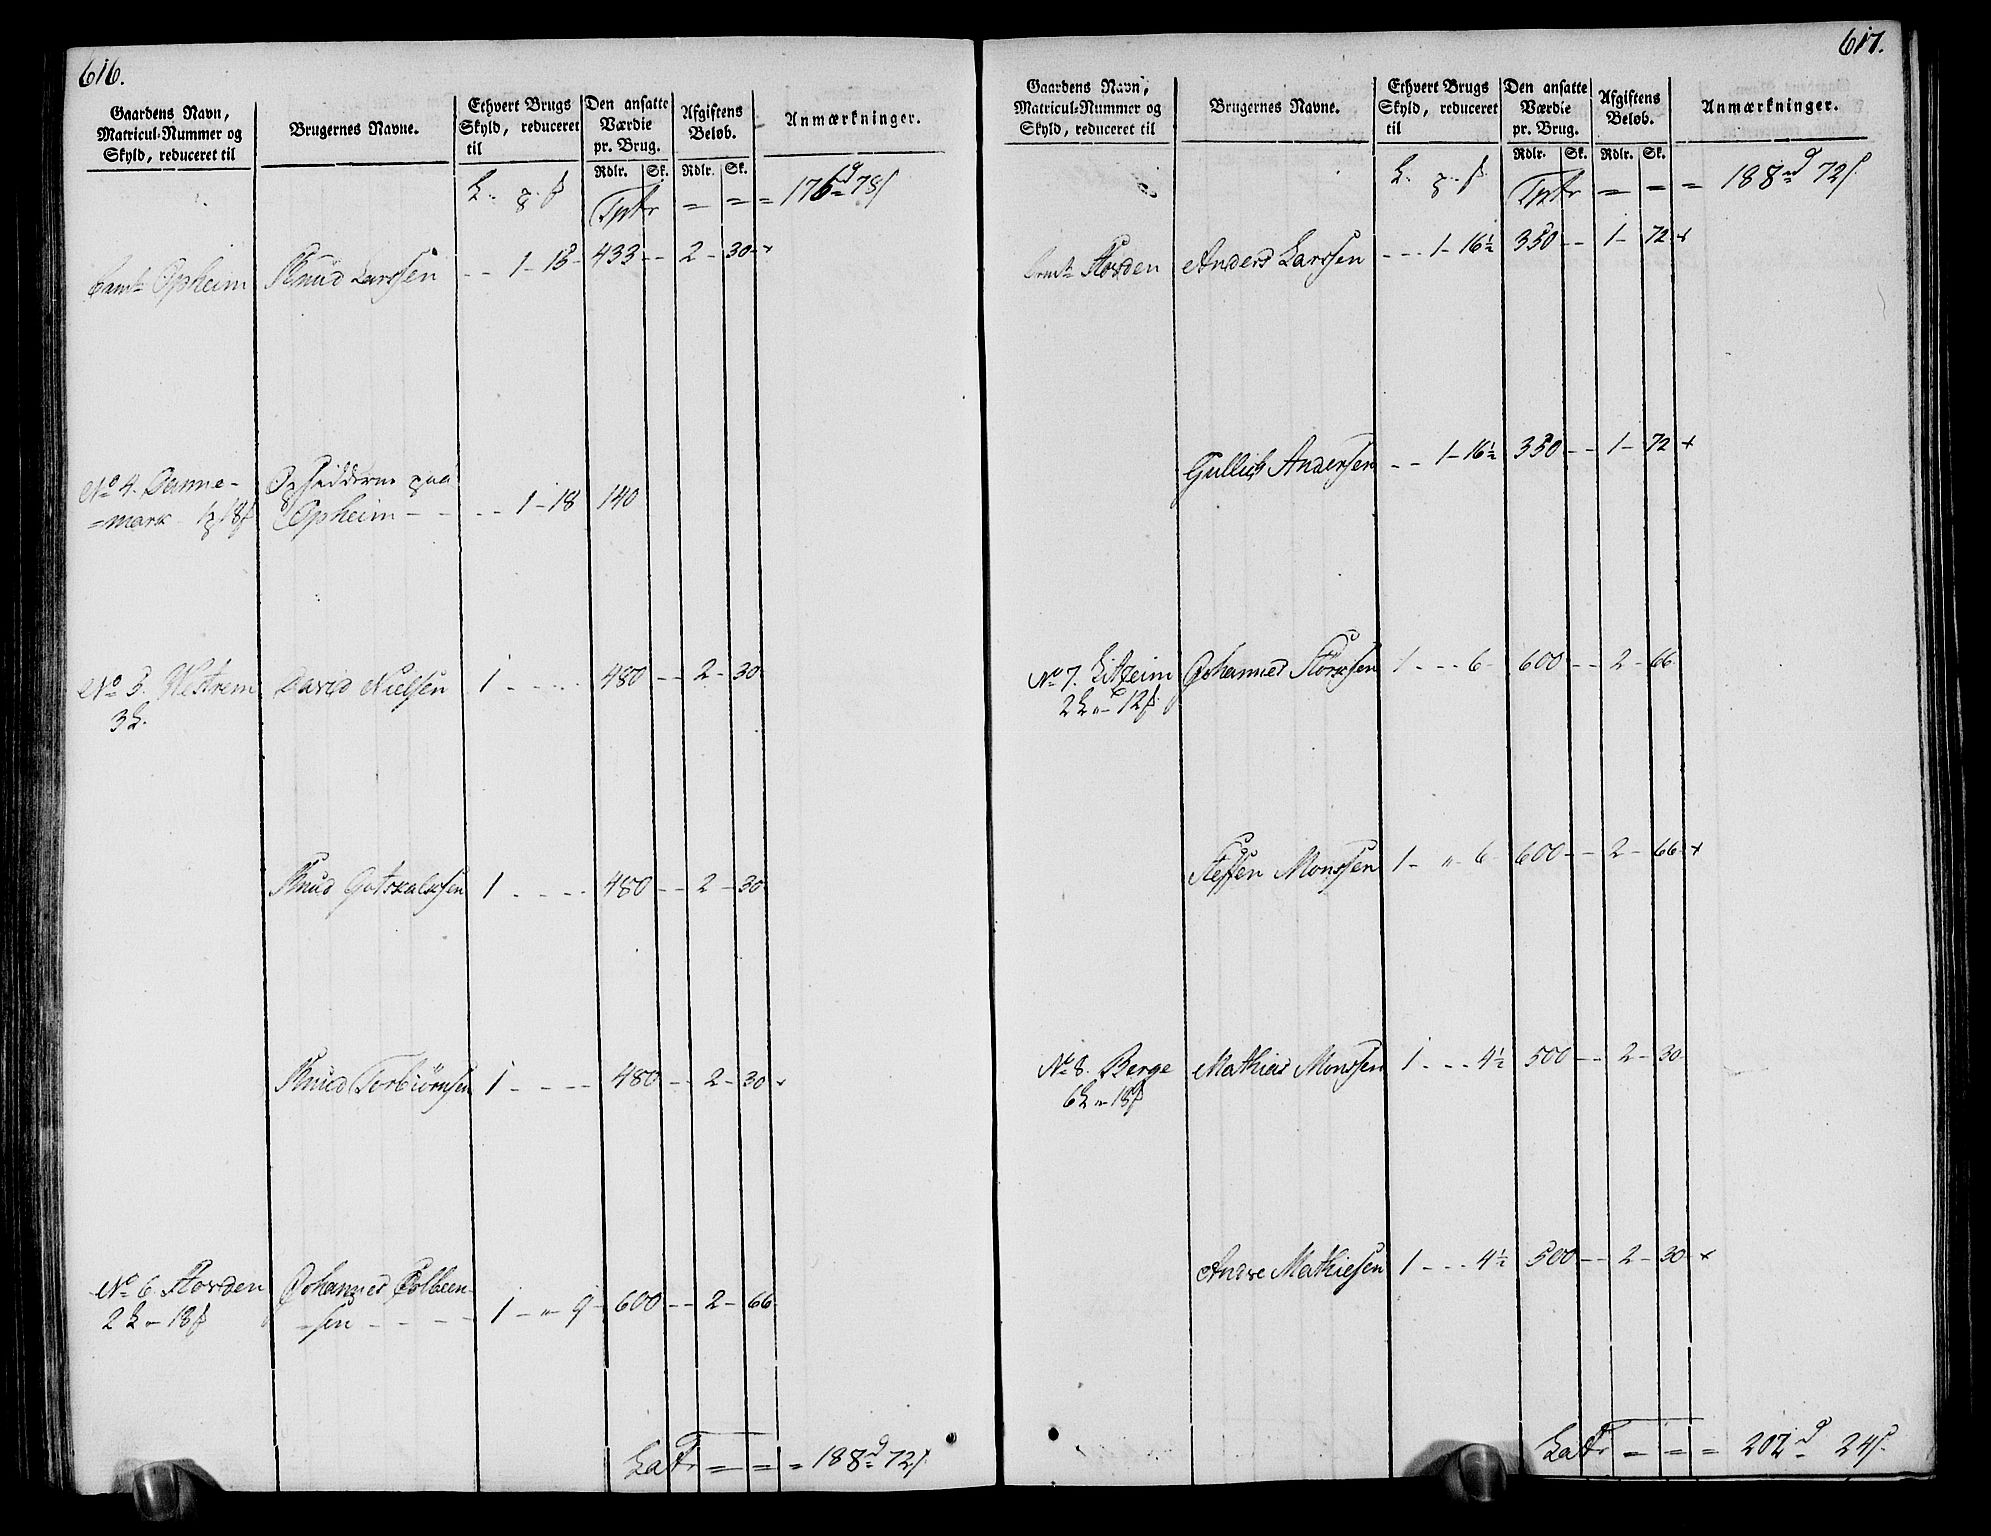 616.
Gaardens Navn, Matricul-Nummer og Skyld, reduceret til
Brugernes Navne.
Ethvert Brugs Skyld, reduceret til
Den ansatte Værdie pr. Brug.
Afgiftens Beløb.
Anmærkninger.
Rdlr. Sk. Rdlr. Sk.
= = = 176 78
Opheim Knud Larssen - - 1 - 18 - 433 - - 2 - 30 - +
No 4. Danne- Opsidderne paa
=mark Opheim - - - - 1 - 18 140
No 5. Westrem David Nielsen 1 - - - - 480 - - 2 - 30
3
Knud Gutskalksen 1 - - - - 480 - - 2 - 30
Knud Torbiörnsen 1 - - - - 480 - - 2 - 30
No 6. Johannes
2 - 18 =sen - - - - 1 - " - 9 - 600 - - 2 - 66
Latr = = = 188 72
617.
Gaardens Navn, Matricul-Nummer og Skyld, reduceret til
Brugernes Navne.
Ethvert Brugs Skyld, reduceret til
Den ansatte Værdie pr. Brug.
Afgiftens Beløb.
Anmærkninger.
Rdlr. Sk. Rdlr. Sk.
= = = 188 72
Anders Larssen - - - 1 - 16½ 350 - - 1 - 72 +
Gullich Andersen - - 1 - 16½ 350 - - 1 - 72 +
No 7. Johannes 1 - - - 6 - 600 - - 2 - 66
2 " - 12
Steffen Monssen 1 - " - 6 - 600 - - 2 - 66 +
No 8. Berge Mathias Monssen 1 - - - 4½ 500 - - 2 - 30
6 " - 18
Andre Mathiesen 1 - - - 4½ 500 - - 2 - 30 +
Latr = = = 202 24